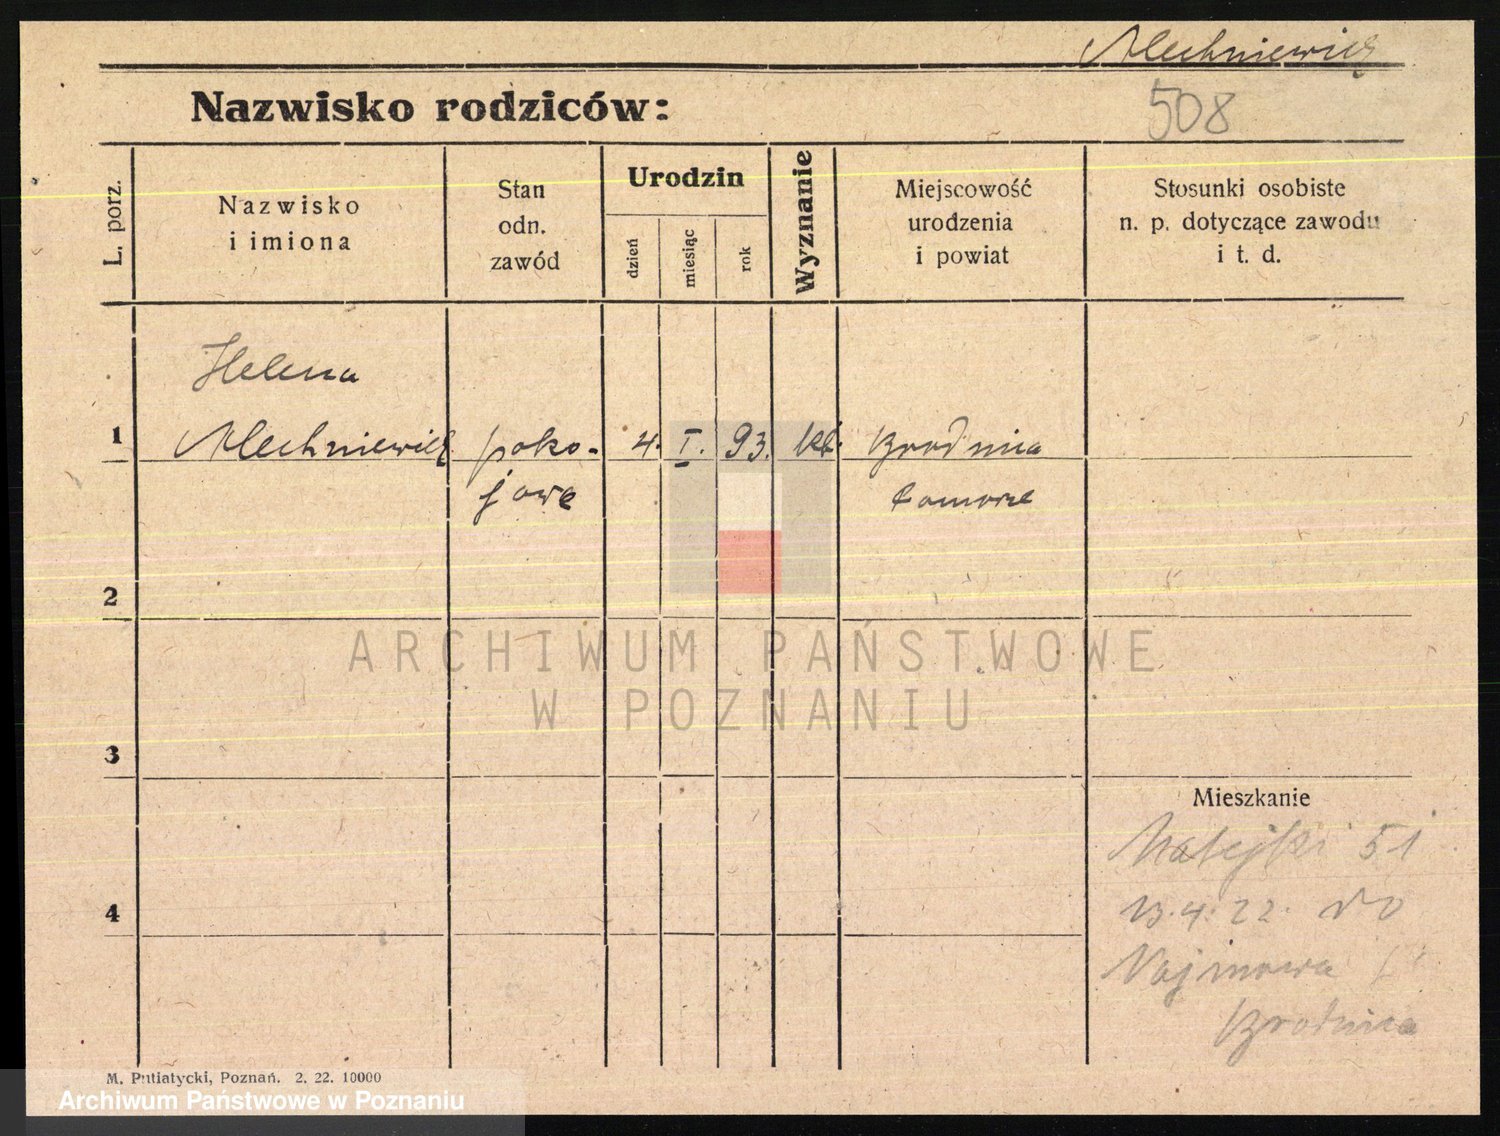 Mechniewicz
Nazwisko rodziców:
508
L. porz.
Nazwisko
i imiona
Stan
odn.
zawód
Urodzin
dzień
miesiąc
rok
Wyznanie
Miejscowość
urodzenia
i powiat
Stosunki osobiste
n. p. dotyczące zawodu
i t. d.
Helena
1 Mechniewicz poko- 4. I. 93. kt. Brodnica
jowa Pomorze
2
ARCHIWUM PAŃSTWOWE
W POZNANIU
3
Mieszkanie
Matejki 51
13.4.22. do
4
Najmowa
Brodnica
M. Putiatycki, Poznań. 2. 22. 10000
Archiwum Państwowe w Poznaniu